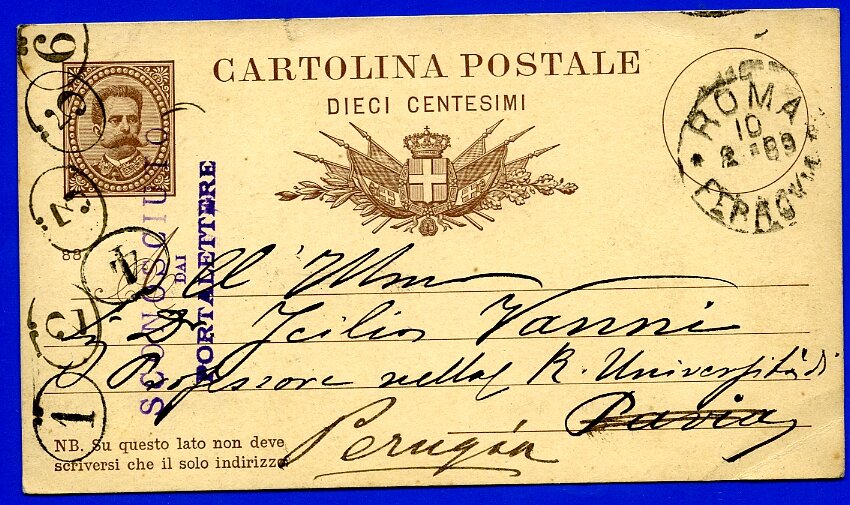 CARTOLINA POSTALE
DIECI CENTESIMI
ROMA
10
2 - 89
FERROVIA
6
2
21
4
5
1
88
SCONOSCIUTO
DAI
PORTALETTERE
Al Illmo
Sr Dr Icilio Vanni
Professore nella R. Università di
Pavia
Perugia
NB. Su questo lato non deve
scriversi che il solo indirizzo.